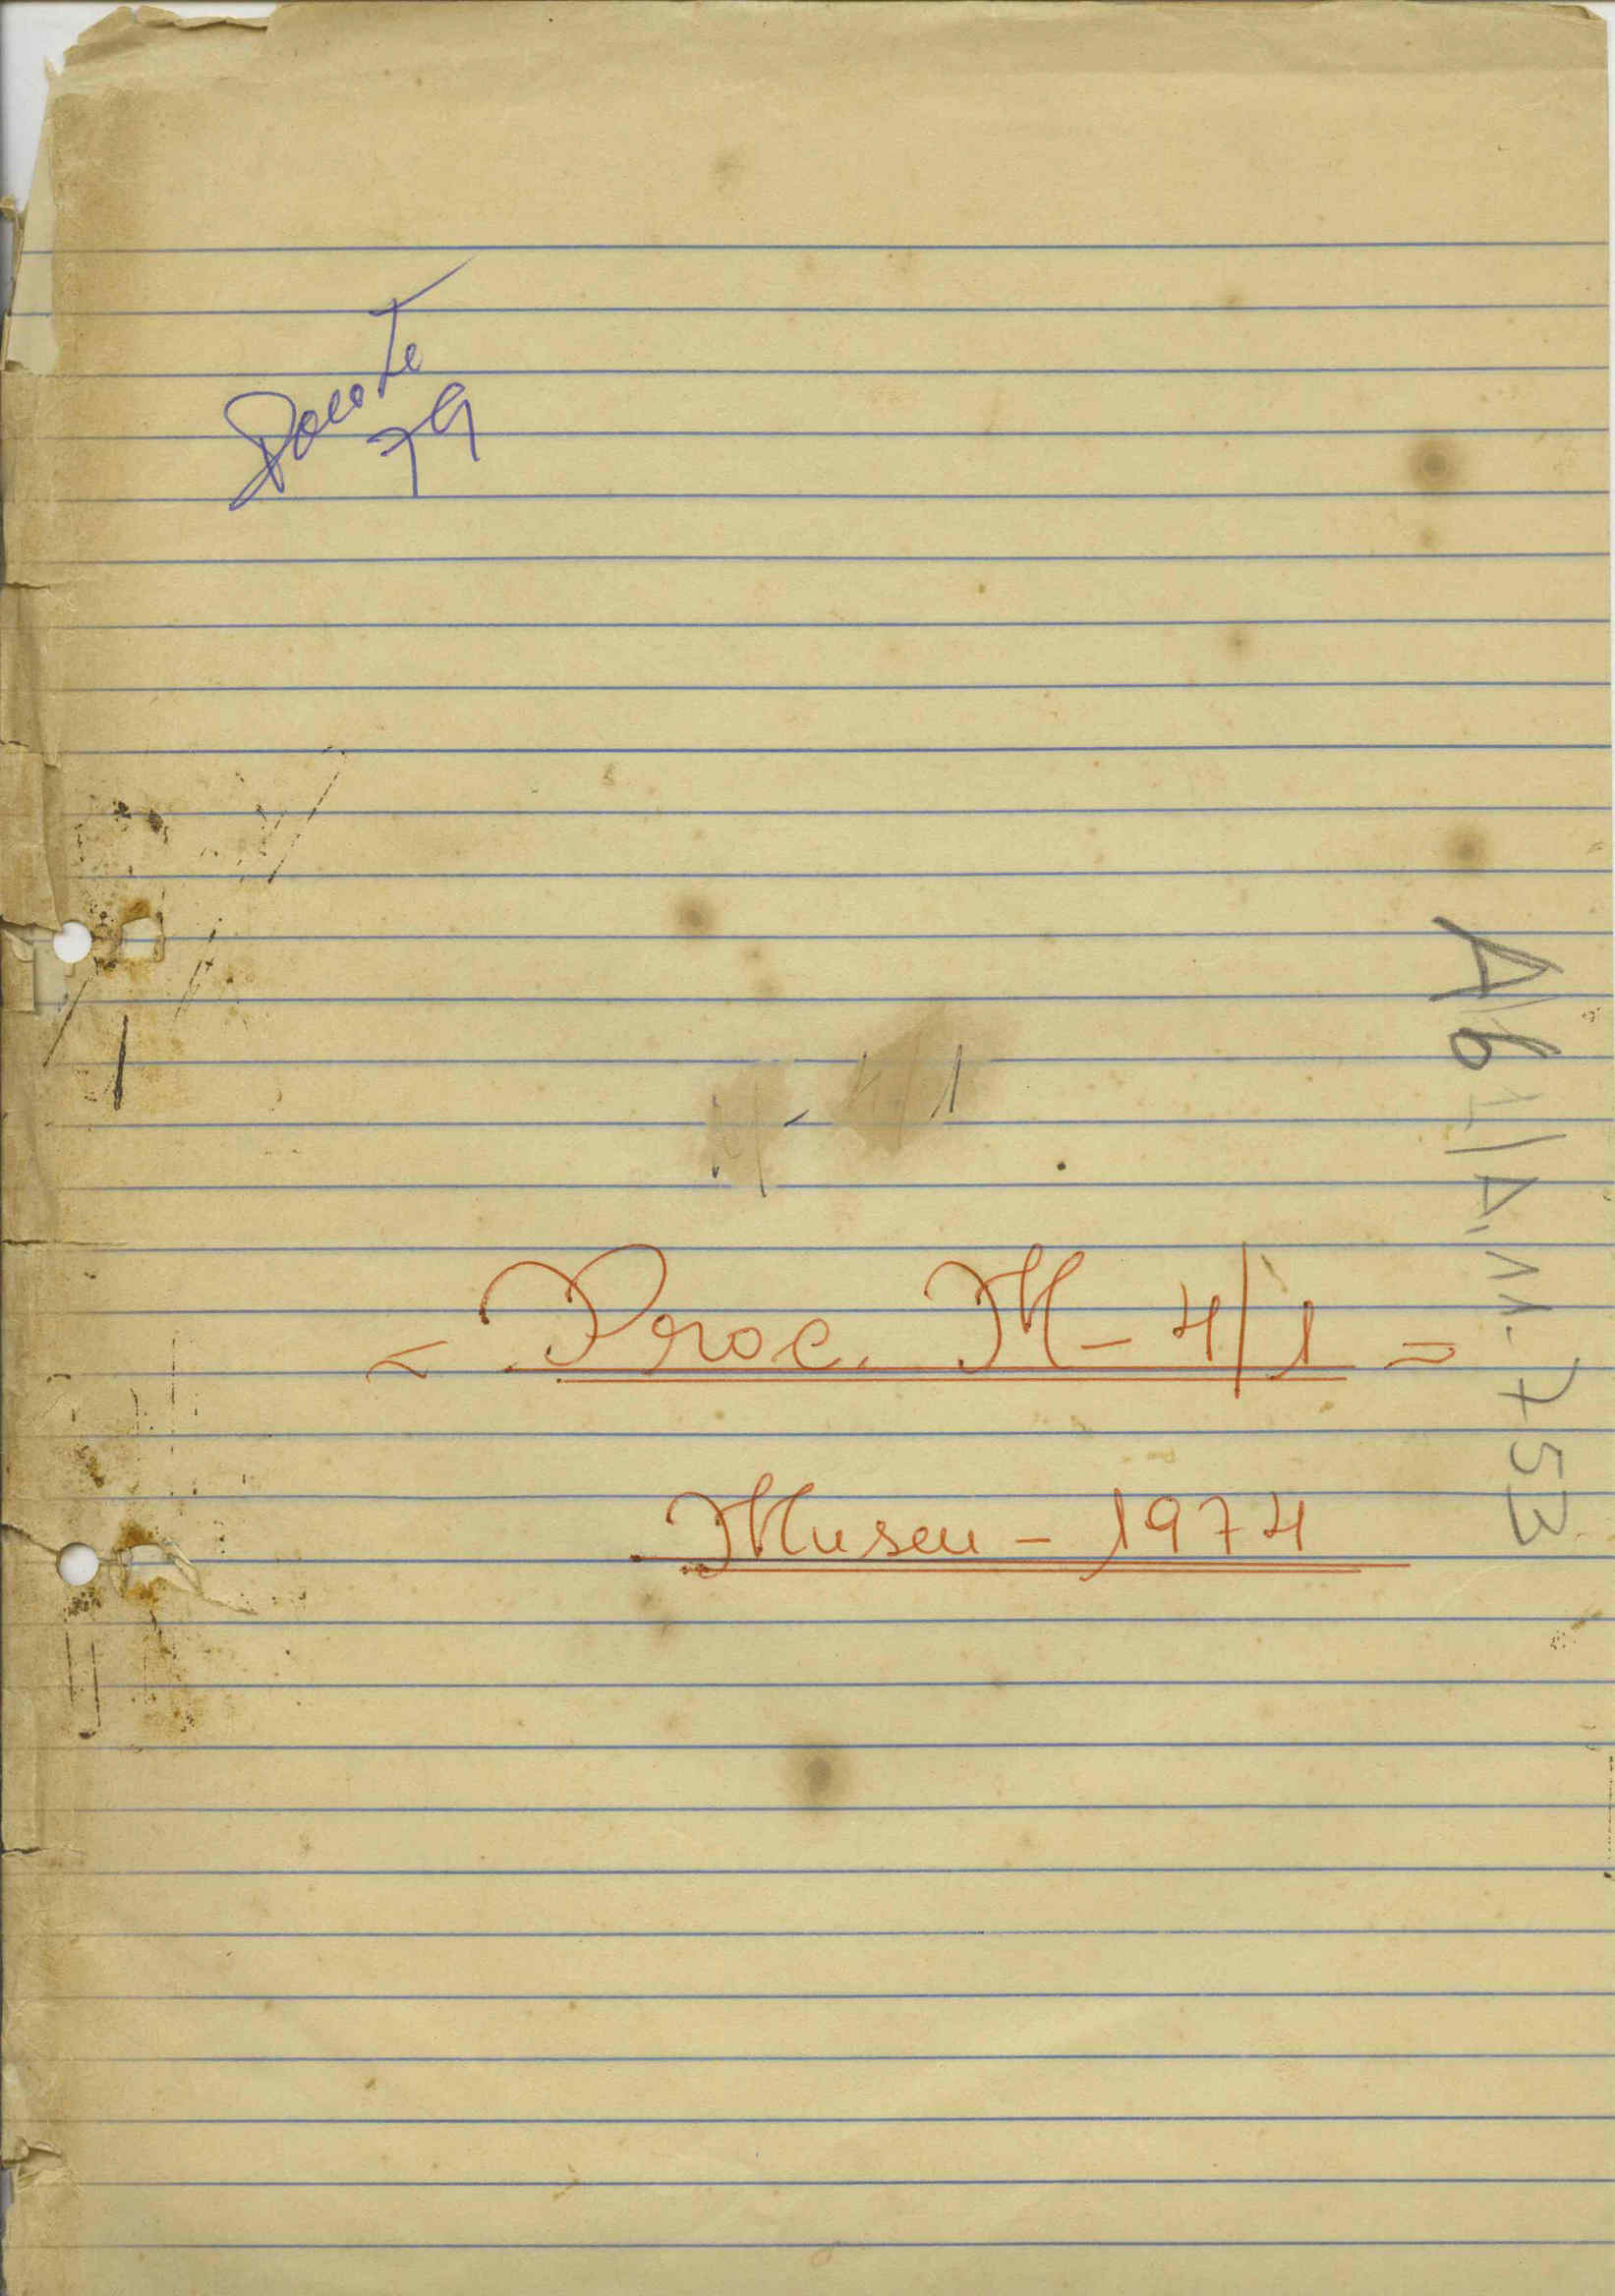 Pacote
79
M-4/1
= Proc. M-4/1 =
Museu - 1974
A6 1/D.11-753